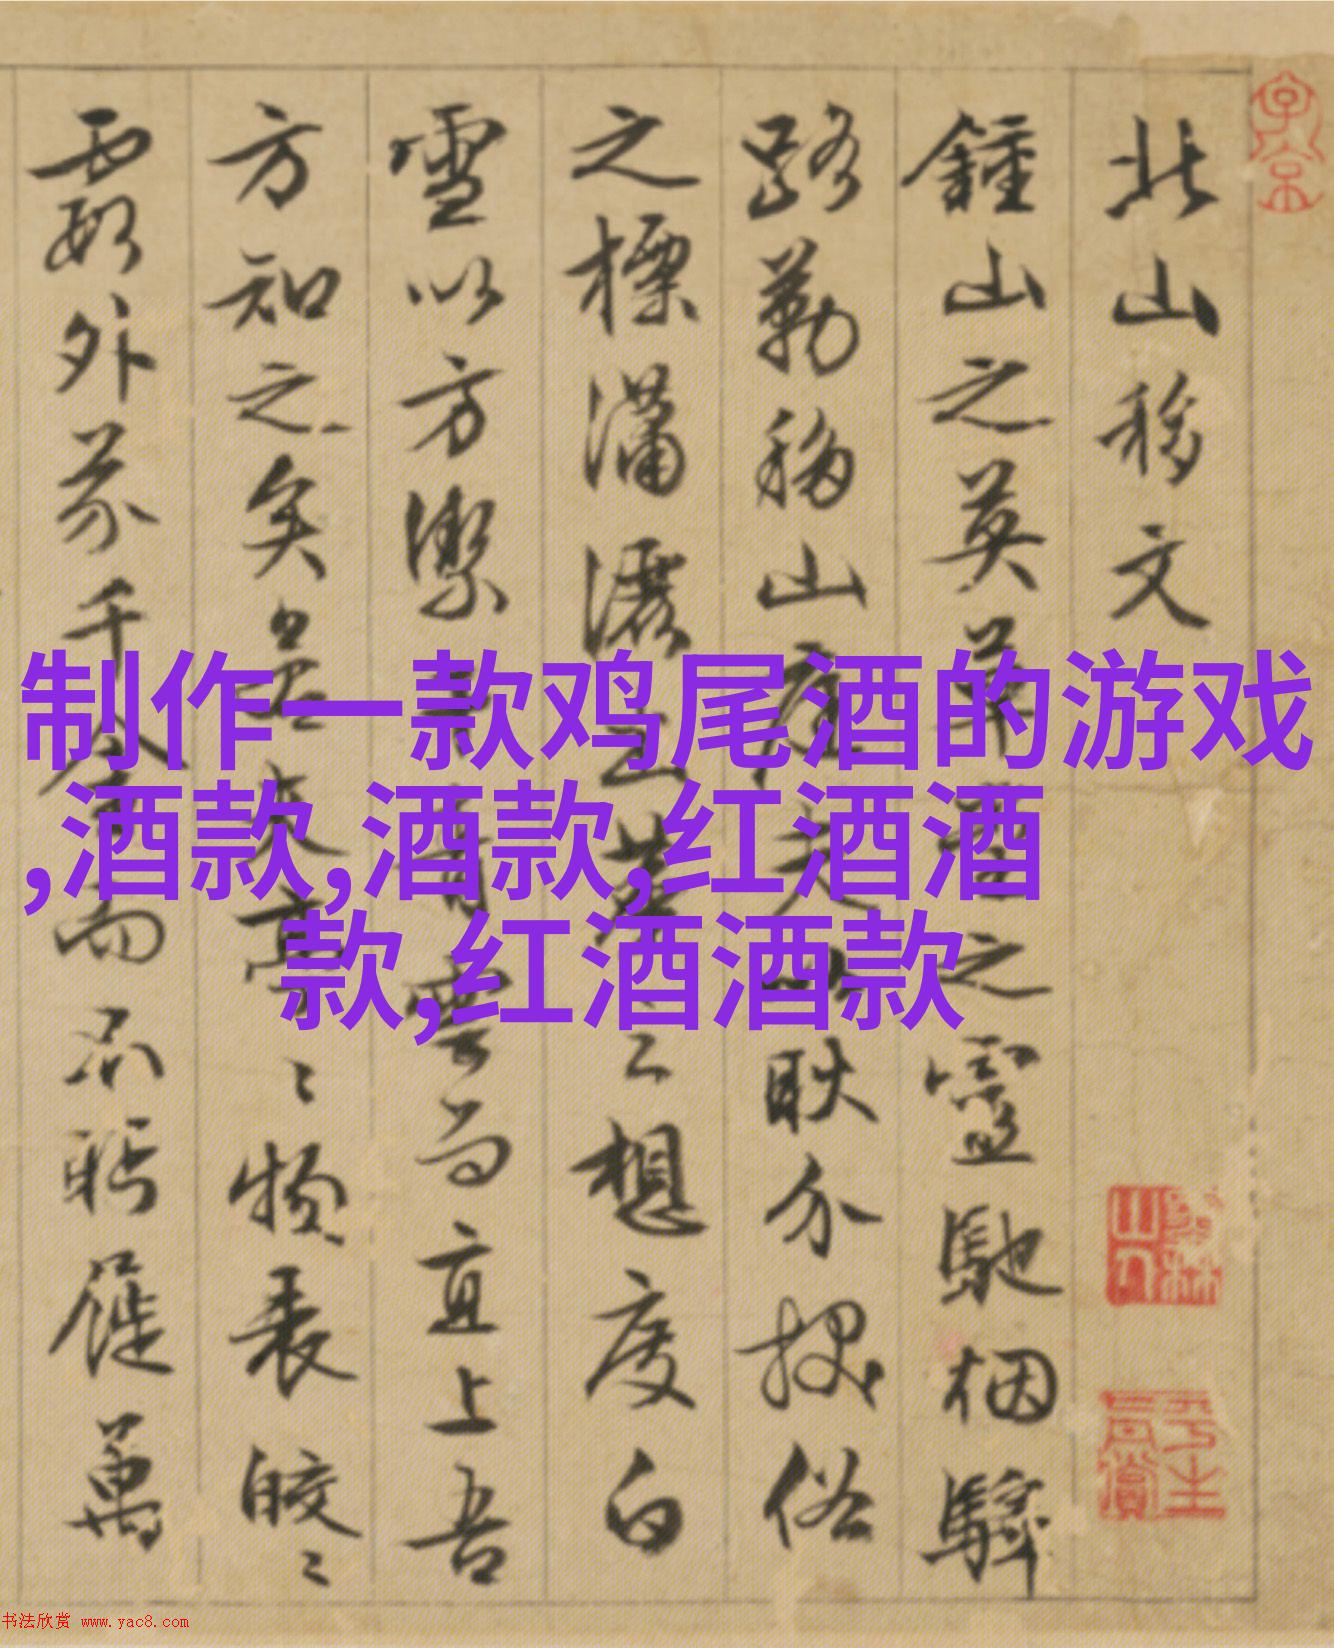 制作一款鸡尾酒的游戏
,酒款,酒款,红酒酒
款,红酒酒款
北山移文
鍾山之英草堂之靈馳烟驛
路勒移山庭夫以耿介拔俗
之標瀟灑出塵之想度白
雪以方潔干青雲而直上吾
方知之矣若其亭〻物表皎〻
霞外芥千金而不眄屣萬
书法欣赏 www.yac8.com